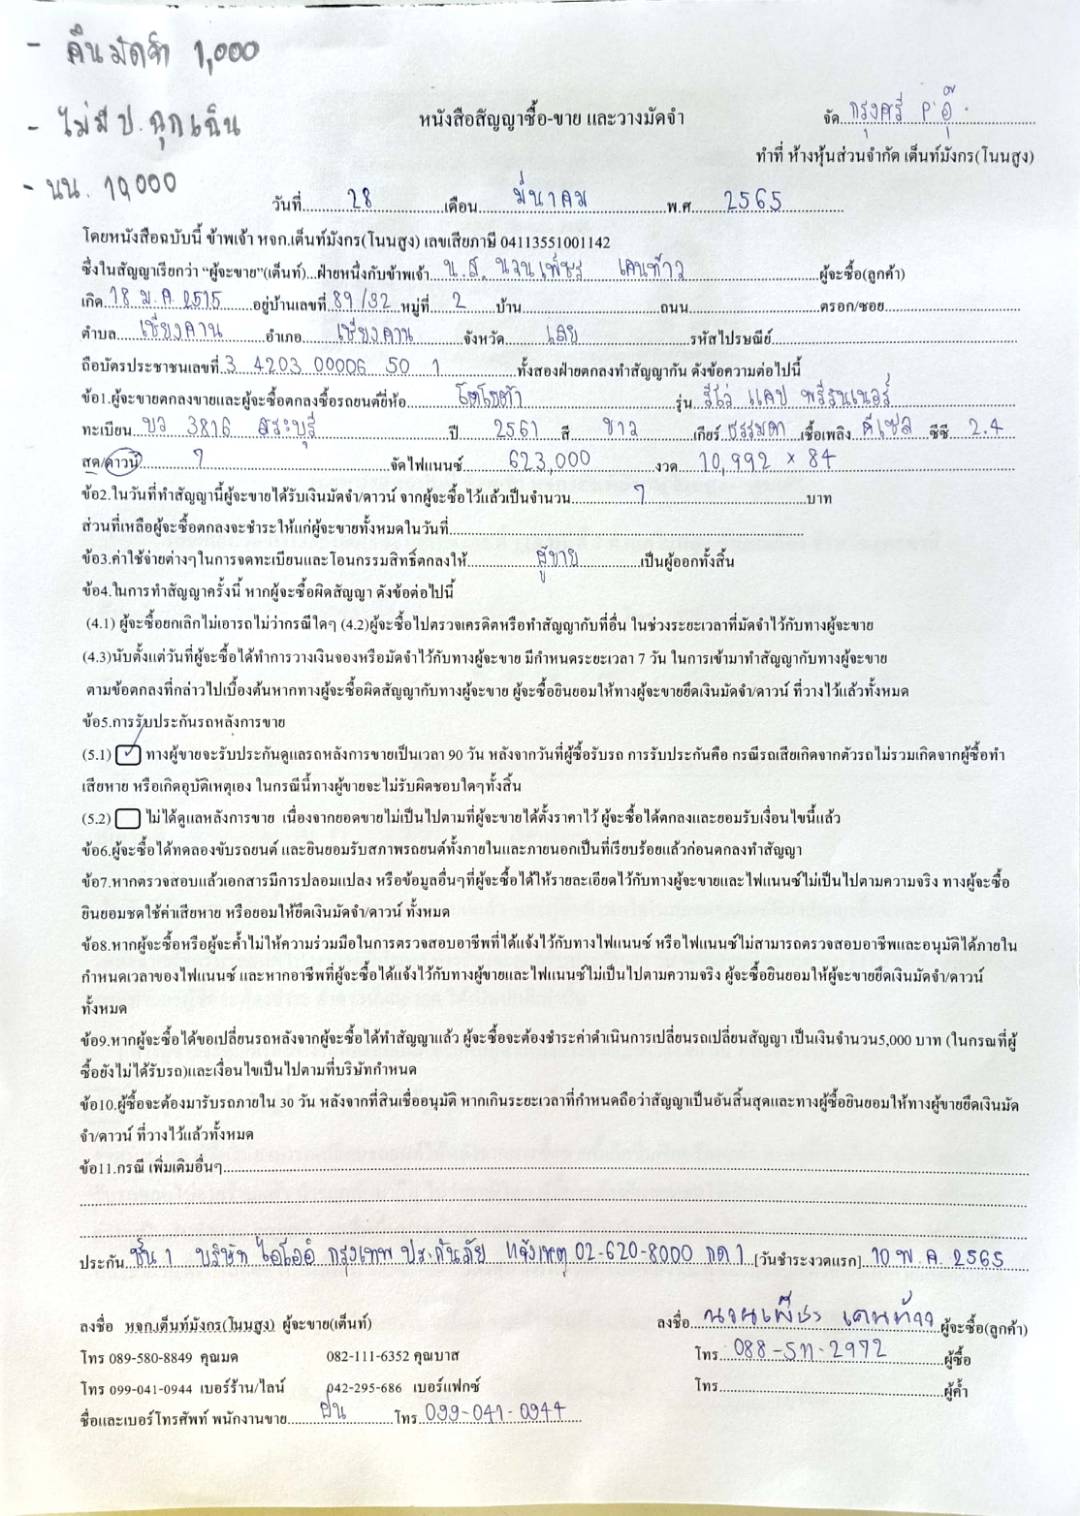 - คืนมัดจำ 1,000
- ไม่มี ป. ฉุกเฉิน
- นน. 10,000
หนังสือสัญญาซื้อ-ขาย และวางมัดจำ
จัด กรุงศรี P'อุ๊
ทำที่ ห้างหุ้นส่วนจำกัด เต็นท์มังกร(โนนสูง)
วันที่ 28 เดือน มีนาคม พ.ศ. 2565
โดยหนังสือฉบับนี้ ข้าพเจ้า หจก.เต็นท์มังกร(โนนสูง) เลขเสียภาษี 04113551001142
ซึ่งในสัญญาเรียกว่า "ผู้จะขาย"(เต็นท์)...ฝ่ายหนึ่งกับข้าพเจ้า น.ส. นวนเพ็ชร เคนท้าว ผู้จะซื้อ(ลูกค้า)
เกิด 18 ม.ค 2515 อยู่บ้านเลขที่ 89/32 หมู่ที่ 2 บ้าน ถนน ตรอก/ซอย
ตำบล เชียงคาน อำเภอ เชียงคาน จังหวัด เลย รหัสไปรษณีย์
ถือบัตรประชาชนเลขที่ 3 4203 00006 50 1 ทั้งสองฝ่ายตกลงทำสัญญากัน ดังข้อความต่อไปนี้
ข้อ1.ผู้จะขายตกลงขายและผู้จะซื้อตกลงซื้อรถยนต์ยี่ห้อ โตโยต้า รุ่น รีโว่ แคป พรีรันเนอร์
ทะเบียน บว 3816 สระบุรี ปี 2561 สี ขาว เกียร์ ธรรมดา เชื้อเพลิง ดีเซล ซีซี 2.4
สด/ดาวน์ 7 จัดไฟแนนซ์ 623,000 งวด 10,992 × 84
ข้อ2.ในวันที่ทำสัญญานี้ผู้จะขายได้รับเงินมัดจำ/ดาวน์ จากผู้จะซื้อไว้แล้วเป็นจำนวน 7 บาท
ส่วนที่เหลือผู้จะซื้อตกลงจะชำระให้แก่ผู้จะขายทั้งหมดในวันที่
ข้อ3.ค่าใช้จ่ายต่างๆในการจดทะเบียนและโอนกรรมสิทธิ์ตกลงให้ ผู้ขาย เป็นผู้ออกทั้งสิ้น
ข้อ4.ในการทำสัญญาครั้งนี้ หากผู้จะซื้อผิดสัญญา ดังข้อต่อไปนี้
(4.1) ผู้จะซื้อยกเลิกไม่เอารถไม่ว่ากรณีใดๆ (4.2)ผู้จะซื้อไปตรวจเครดิตหรือทำสัญญากับที่อื่น ในช่วงระยะเวลาที่มัดจำไว้กับทางผู้จะขาย
(4.3)นับตั้งแต่วันที่ผู้จะซื้อได้ทำการวางเงินจองหรือมัดจำไว้กับทางผู้จะขาย มีกำหนดระยะเวลา 7 วัน ในการเข้ามาทำสัญญากับทางผู้จะขาย
ตามข้อตกลงที่กล่าวไปเบื้องต้นหากทางผู้จะซื้อผิดสัญญากับทางผู้จะขาย ผู้จะซื้อยินยอมให้ทางผู้จะขายยึดเงินมัดจำ/ดาวน์ ที่วางไว้แล้วทั้งหมด
ข้อ5.การรับประกันรถหลังการขาย
(5.1) ✓ ทางผู้ขายจะรับประกันดูแลรถหลังการขายเป็นเวลา 90 วัน หลังจากวันที่ผู้ซื้อรับรถ การรับประกันคือ กรณีรถเสียเกิดจากตัวรถไม่รวมเกิดจากผู้ซื้อทำ
เสียหาย หรือเกิดอุบัติเหตุเอง ในกรณีนี้ทางผู้ขายจะไม่รับผิดชอบใดๆทั้งสิ้น
(5.2) ไม่ได้ดูแลหลังการขาย เนื่องจากยอดขายไม่เป็นไปตามที่ผู้จะขายได้ตั้งราคาไว้ ผู้จะซื้อได้ตกลงและยอมรับเงื่อนไขนี้แล้ว
ข้อ6.ผู้จะซื้อได้ทดลองขับรถยนต์ และยินยอมรับสภาพรถยนต์ทั้งภายในและภายนอกเป็นที่เรียบร้อยแล้วก่อนตกลงทำสัญญา
ข้อ7.หากตรวจสอบแล้วเอกสารมีการปลอมแปลง หรือข้อมูลอื่นๆที่ผู้จะซื้อได้ให้รายละเอียดไว้กับทางผู้จะขายและไฟแนนซ์ไม่เป็นไปตามความจริง ทางผู้จะซื้อ
ยินยอมชดใช้ค่าเสียหาย หรือยอมให้ยึดเงินมัดจำ/ดาวน์ ทั้งหมด
ข้อ8.หากผู้จะซื้อหรือผู้จะค้ำไม่ให้ความร่วมมือในการตรวจสอบอาชีพที่ได้แจ้งไว้กับทางไฟแนนซ์ หรือไฟแนนซ์ไม่สามารถตรวจสอบอาชีพและอนุมัติได้ภายใน
กำหนดเวลาของไฟแนนซ์ และหากอาชีพที่ผู้จะซื้อได้แจ้งไว้กับทางผู้ขายและไฟแนนซ์ไม่เป็นไปตามความจริง ผู้จะซื้อยินยอมให้ผู้จะขายยึดเงินมัดจำ/ดาวน์
ทั้งหมด
ข้อ9.หากผู้จะซื้อได้ขอเปลี่ยนรถหลังจากผู้จะซื้อได้ทำสัญญาแล้ว ผู้จะซื้อจะต้องชำระค่าดำเนินการเปลี่ยนรถเปลี่ยนสัญญา เป็นเงินจำนวน5,000 บาท (ในกรณที่ผู้
ซื้อยังไม่ได้รับรถ)และเงื่อนไขเป็นไปตามที่บริษัทกำหนด
ข้อ10.ผู้ซื้อจะต้องมารับรถภายใน 30 วัน หลังจากที่สินเชื่ออนุมัติ หากเกินระยะเวลาที่กำหนดถือว่าสัญญาเป็นอันสิ้นสุดและทางผู้ซื้อยินยอมให้ทางผู้ขายยึดเงินมัด
จำ/ดาวน์ ที่วางไว้แล้วทั้งหมด
ข้อ11.กรณี เพิ่มเติมอื่นๆ
ประกัน ชั้น 1 บริษัท ไอโออิ กรุงเทพ ประกันภัย แจ้งเหตุ 02-620-8000 กด 1 [วันชำระงวดแรก] 10 พ.ค. 2565
ลงชื่อ หจก.เต็นท์มังกร(โนนสูง) ผู้จะขาย(เต็นท์) ลงชื่อ นวนเพ็ชร เคนท้าว ผู้จะซื้อ(ลูกค้า)
โทร 089-580-8849 คุณมด 082-111-6352 คุณบาส โทร 088-511-2972 ผู้ซื้อ
โทร 099-041-0944 เบอร์ร้าน/ไลน์ 042-295-686 เบอร์แฟกซ์ โทร ผู้ค้ำ
ชื่อและเบอร์โทรศัพท์ พนักงานขาย ฝน โทร 099-041-0944